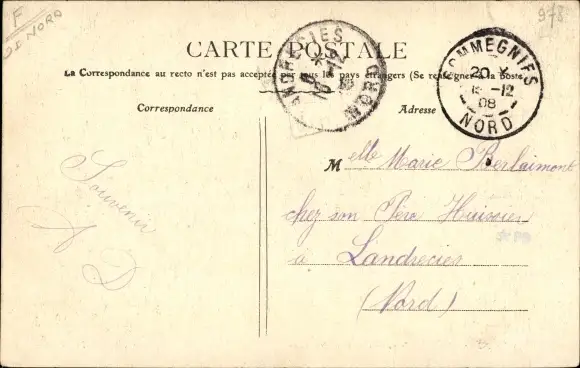 F
NORD
978
CARTE POSTALE
La Correspondance au recto n'est pas acceptée par tous les pays étrangers (Se renseigner à la Poste)
Correspondance
Adresse
LANDRECIES
12
NORD
GOMMEGNIES
20
-12
08
NORD
Souvenir
A D
Melle Marie Berlaimont
chez son Père Huissier
à Landrecies
(Nord)